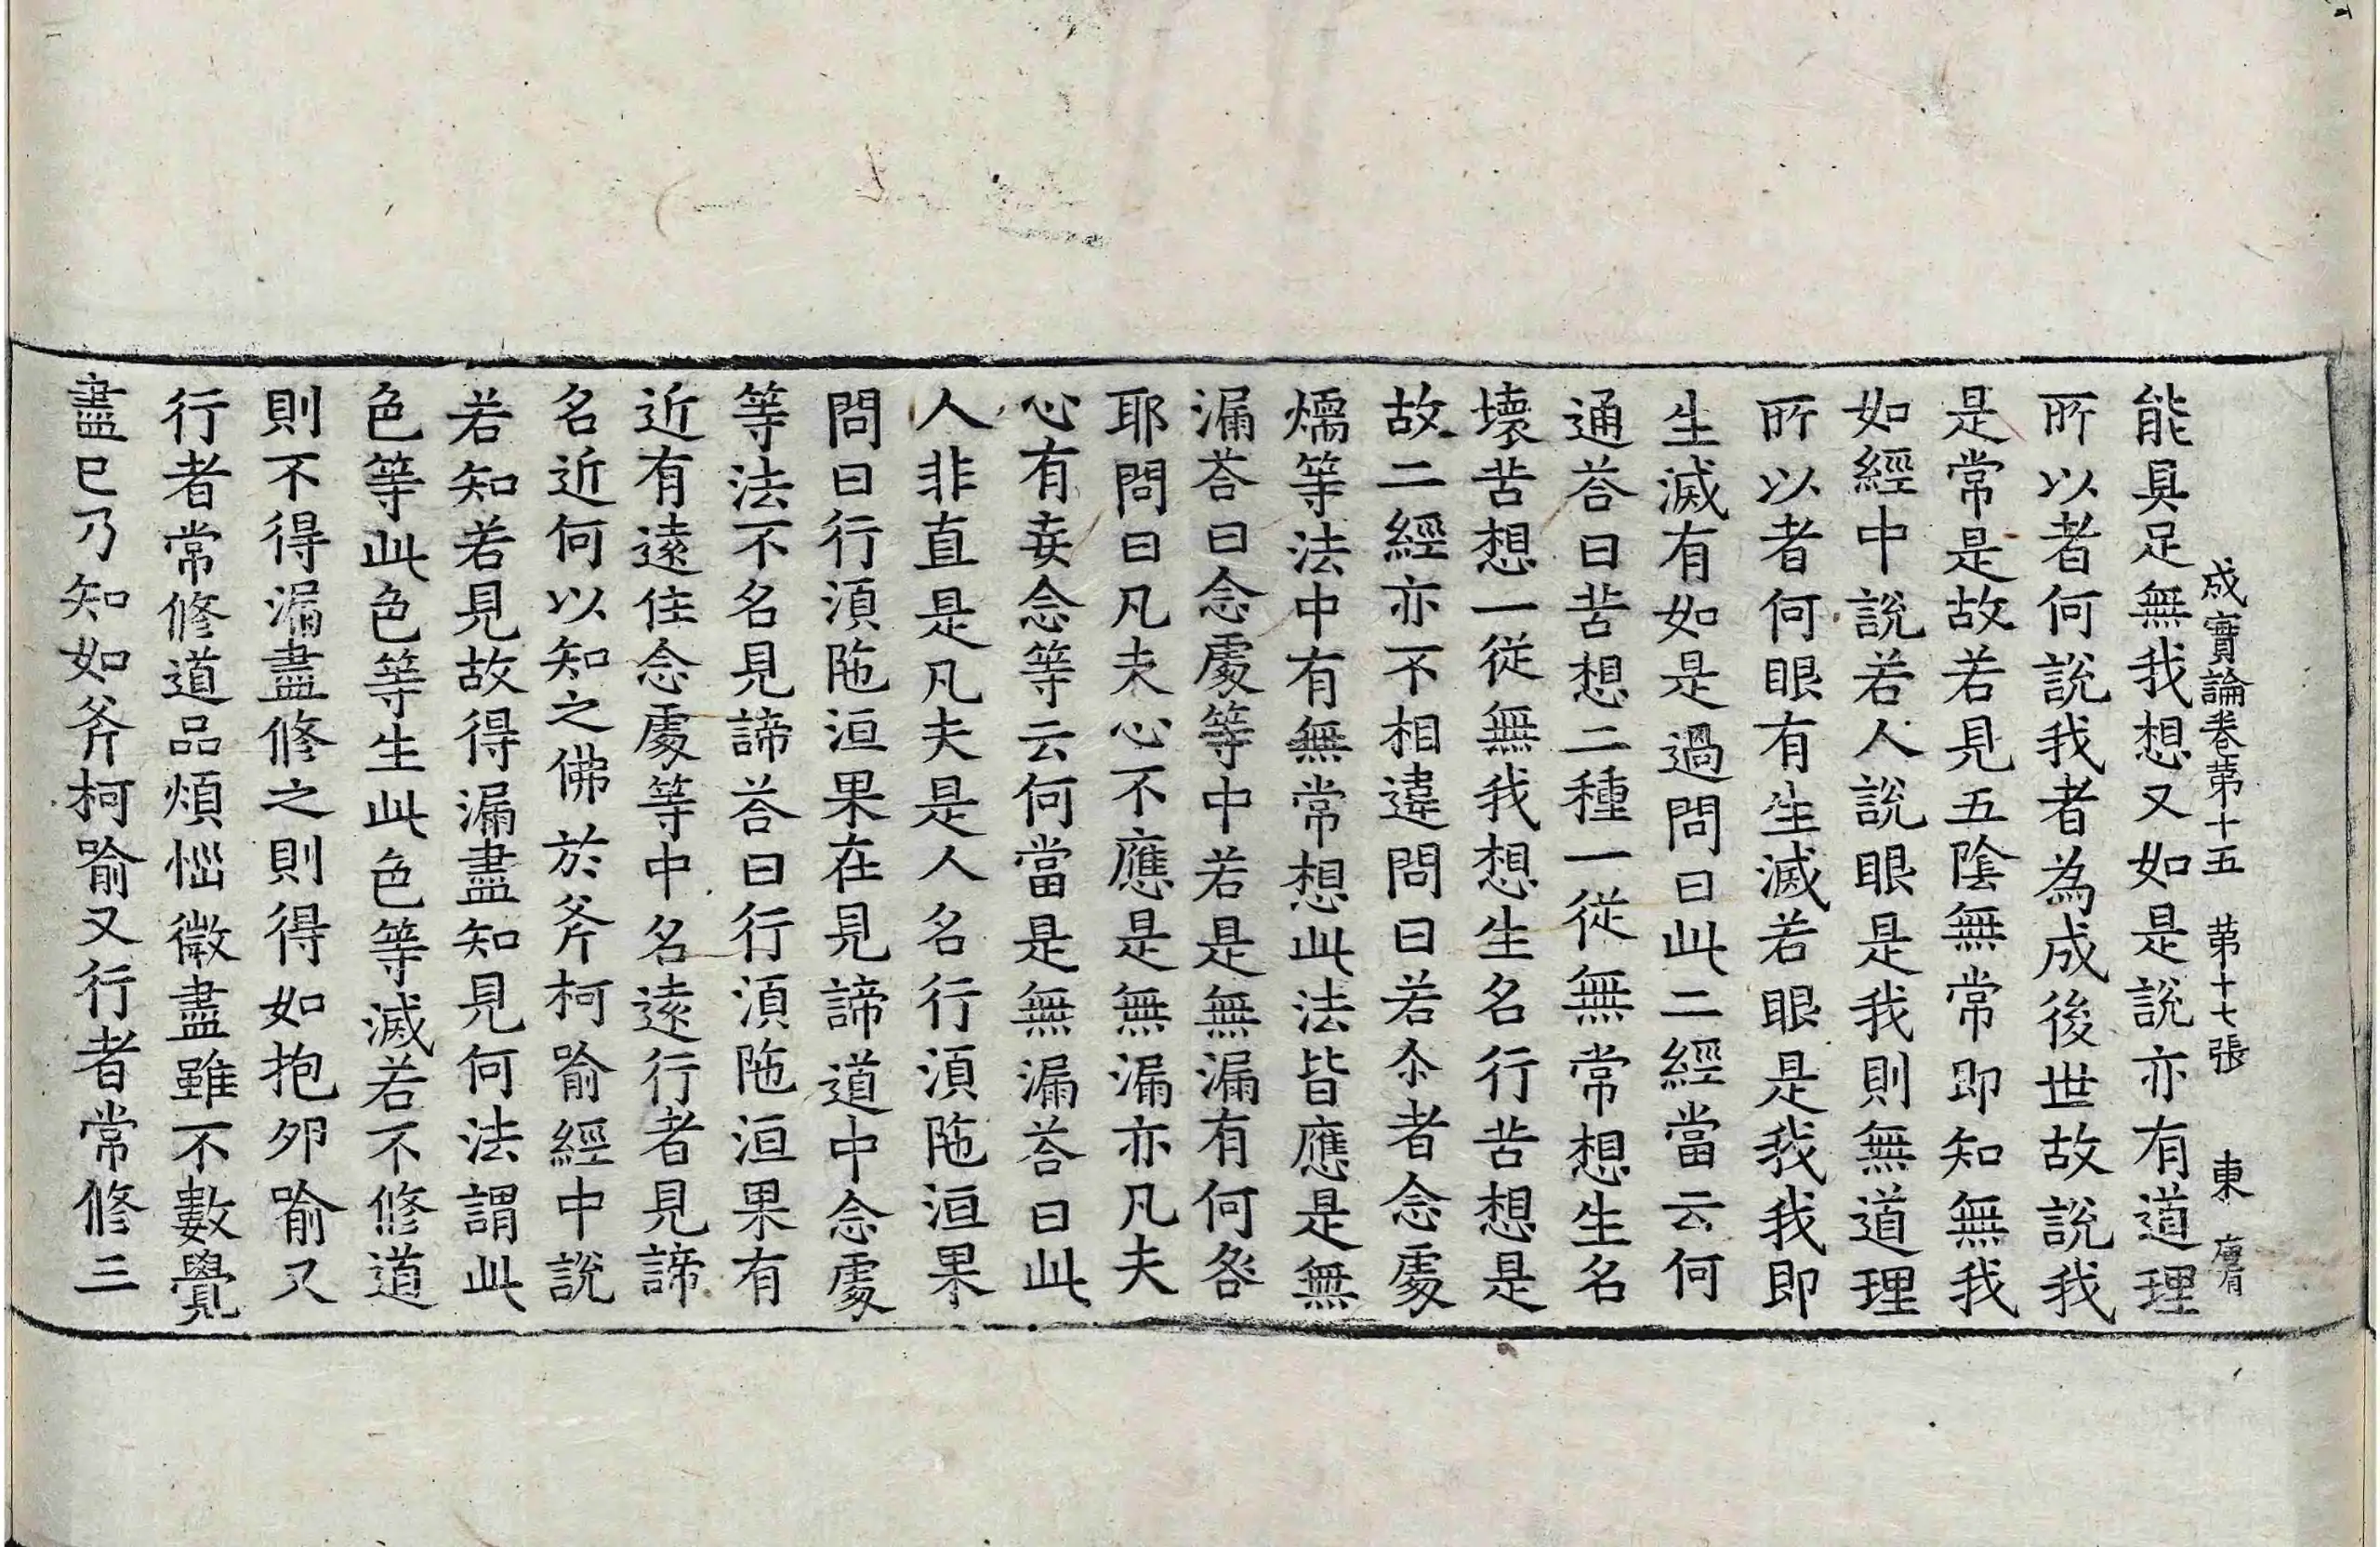 成實論卷苐十五 苐十七張 東
能具足無我想又如是説亦有道理
所以者何説我者為成後世故説我
是常是故若見五隂無常即知無我
如經中説若人説眼是我則無道理
所以者何眼有生滅若眼是我我即
生滅有如是過問曰此二經當云何
通荅曰苦想二種一從無常想生名
壊苦想一從無我想生名行苦想是
故二經亦不相違問曰若尒者念處
煗等法中有無常想此法皆應是無
漏荅曰念處等中若是無漏有何咎
耶問曰凡夫心不應是無漏亦凡夫
心有妄念等云何當是無漏荅曰此
人非直是凡夫是人名行湏陁洹果
問曰行湏陁洹果在見諦道中念處
等法不名見諦荅曰行湏陁洹果有
近有逺住念處等中名逺行者見諦
名近何以知之佛於斧柯喻經中説
若知若見故得漏盡知見何法謂此
色等此色等生此色等滅若不修道
則不得漏盡修之則得如抱夘喻又
行者常修道品煩惱微盡雖不數覺
盡已乃知如斧柯喻又行者常修三